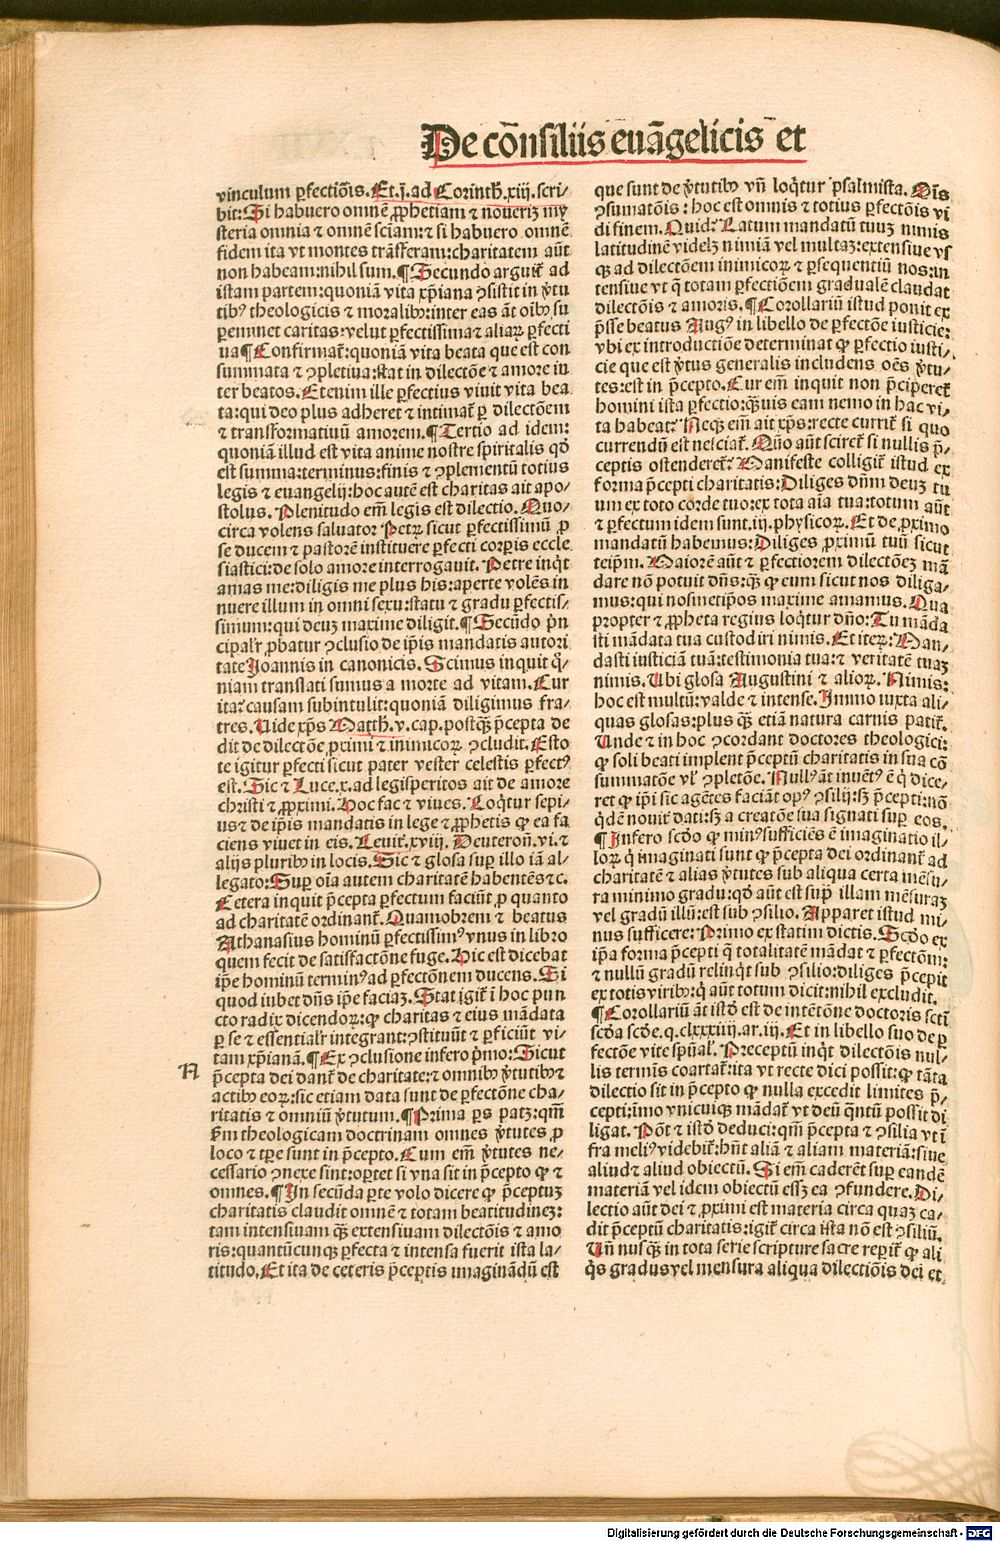 De cōnsiliis euāgelicis et
vinculum ꝑfectiōis. Et .j. ad Corinth̄. xiij. scri⸗
bit: Si habuero omnē ꝓphetiam ⁊ noueriꝫ my
steria omnia ⁊ omnē sciam: ⁊ si habuero omnē
fidem ita vt montes trāsferam: charitatem aūt
non habeam: nihil sum. ¶ Secundo arguit̄ ad
istam partem: quoniā vita xp̄iana ꝯsistit in v̄tu
tibꝰ theologicis ⁊ moralibꝰ: inter eas āt oībꝰ su
ꝑeminet caritas: velut ꝑfectissima ⁊ aliaꝝ ꝑfecti
ua ¶ Confirmat̄: quoniā vita beata que est con
summata ⁊ ꝯpletiua: stat in dilectōe ⁊ amore in
ter beatos. Etenim ille ꝑfectius viuit vita bea
ta: qui deo plus adheret ⁊ intimat̄ ꝑ dilectōem
⁊ transformatiuū amorem. ¶ Tertio ad idem:
quoniā illud est vita anime nostre spiritalis qd̄
est summa: terminus: finis ⁊ ꝯplementū totius
legis ⁊ euangelij: hoc autē est charitas ait apo⸗
stolus. Plenitudo em̄ legis est dilectio. Quo⸗
circa volens saluator Petrꝝ sicut ꝑfectissimū ꝓ
se ducem ⁊ pastorē instituere ꝑfecti corꝑis eccle
siastici: de solo amore interrogauit. Petre inq̇t
amas me: diligis me plus his: aperte volēs in
nuere illum in omni sexu: statu ⁊ gradu ꝑfectis⸗
simum: qui deuꝫ maxime diligit. ¶ Secūdo p̄n
cipalr̄ ꝓbatur ꝯclusio de ip̄is mandatis autori
tate Joannis in canonicis. Scimus inquit q̄⸗
niam translati sumus a morte ad vitam. Cur
ita? causam subintulit: quoniā diligimus fra⸗
tres. Uide xp̄s Matth̄. v. cap. postꝗ̄ p̄cepta de
dit de dilectōe ꝓximi ⁊ inimicoꝝ ꝯcludit. Esto
te igitur ꝑfecti sicut pater vester celestis ꝑfectꝰ
est. Sic ⁊ Luce. x. ad legisperitos ait de amore
christi ⁊ ꝓximi. Hoc fac ⁊ viues. Loq̄tur sepi⸗
us ⁊ de ip̄is mandatis in lege ⁊ ꝓphetis ꝙ ea fa
ciens viuet in eis. Leuit̄. xviij. Deuteroñ. vi. ⁊
alijs pluribꝰ in locis. Sic ⁊ glosa suꝑ illo iā al⸗
legato: Suꝑ oīa autem charitatē habentēs ⁊c.
Cetera inquit p̄cepta ꝑfectum faciūt ꝓ quanto
ad charitatē ordinant̄. Quamobrem ⁊ beatus
Athanasius hominū ꝑfectissimꝰ vnus in libro
quem fecit de satisfactōne fuge. Hic est dicebat
ip̄e hominū terminꝰ ad ꝑfectōnem ducens. Si
quod iubet dn̄s ip̄e faciaꝫ. Stat igit̄ ī hoc pun
cto radix dicendoꝝ: ꝙ charitas ⁊ eius mādata
ꝑ se ⁊ essentialr̄ integrant: ꝯstituūt ⁊ ꝑficiūt vi⸗
tam xp̄ianā. ¶ Ex ꝯclusione infero p̄mo: Sicut
A
p̄cepta dei dant̄ de charitate: ⁊ omnibꝰ v̄tutibꝰ ⁊
actibꝰ eoꝝ: sic etiam data sunt de ꝑfectōne cha⸗
ritatis ⁊ omniū v̄tutum. ¶ Prima ꝑs patꝫ: qm̄
ẜm theologicam doctrinam omnes v̄tutes ꝓ
loco ⁊ tꝑe sunt in p̄cepto. Cum em̄ v̄tutes ne⸗
cessario ꝯnexe sint: oꝑtet si vna sit in p̄cepto ꝙ ⁊
omnes. ¶ In secūda ꝑte volo dicere ꝙ p̄ceptuꝫ
charitatis claudit omnē ⁊ totam beatitudineꝫ:
tam intensiuam ꝗ̄ extensiuam dilectōis ⁊ amo
ris: quantūcunꝗꝫ ꝑfecta ⁊ intensa fuerit ista la⸗
titudo. Et ita de ceteris p̄ceptis imaginādū est
que sunt de v̄tutibꝰ vn̄ loq̄tur psalmista. Oīs
ꝯsumatōis: hoc est omnis ⁊ totius ꝑfectōis vi
di finem. Quid? Latum mandatū tuuꝫ nimis
latitudinē videlꝫ nimiā vel multaꝫ: extensiue vs
ꝗꝫ ad dilectōem inimicoꝝ ⁊ ꝑsequentiū nos: in
tensiue vt q̄ totam ꝑfectiōem gradualē claudat
dilectōis ⁊ amoris. ¶ Corollariū istud ponit ex
p̄sse beatus Augꝰ in libello de ꝑfectōe iusticie:
vbi ex introductiōe determinat ꝙ ꝑfectio iusti⸗
cie que est v̄tus generalis includens oēs v̄tu⸗
tes: est in p̄cepto. Cur em̄ inquit non p̄ciperet̄
homini ista ꝑfectio: ꝗ̄uis eam nemo in hac vi⸗
ta habeat? Neqꝫ em̄ ait xp̄s: recte currit̄ si quo
currendū est nesciat̄. Quō aūt sciret̄ si nullis p̄⸗
ceptis ostenderet̄? Manifeste colligit̄ istud ex
forma p̄cepti charitatis: Diliges dn̄m deuꝫ tu
um ex toto corde tuo: ex tota aīa tua: totum aūt
⁊ ꝑfectum idem sunt. iij. physicoꝝ. Et de ꝓximo
mandatū habemus: Diliges ꝓximū tuū sicut
teip̄m. Maiorē aūt ⁊ ꝑfectiorem dilectōeꝫ mā
dare nō potuit dn̄s: ꝗ̄ ꝙ eum sicut nos diliga⸗
mus: qui nosmetip̄os maxime amamus. Qua
propter ⁊ ꝓpheta regius loq̄tur dn̄o: Tu māda
sti mādata tua custodiri nimis. Et iteꝝ: Man⸗
dasti iusticiā tuā: testimonia tua: ⁊ veritatē tuaꝫ
nimis. Ubi glosa Augustini ⁊ alioꝝ. Nimis:
hoc est multū: valde ⁊ intense. Immo iuxta ali⸗
quas glosas: plus ꝗ̄ etiā natura carnis patit̄.
Unde ⁊ in hoc ꝯcordant doctores theologici:
ꝙ soli beati implent p̄ceptū charitatis in sua cō
summatōe vl̄ ꝯpletōe. Nullꝰ āt inuētꝰ ē q̇ dice⸗
ret ꝙ ip̄i sic agētes faciāt opꝰ ꝯsilij: sꝫ p̄cepti: nō
q̇dē nouit̄ dati: sꝫ a creatōe sua signati suꝑ eos.
¶ Infero scd̄o ꝙ minꝰ sufficiēs ē imaginatio il⸗
loꝝ q̇ imaginati sunt ꝙ p̄cepta dei ordinant̄ ad
charitatē ⁊ alias v̄tutes sub aliqua certa mēsu⸗
ra minimo gradu: qd̄ aūt est supͣ illam mēsuraꝫ
vel gradū illū: est sub ꝯsilio. Apparet istud mi⸗
nus sufficere: Primo ex statim dictis. Scd̄o ex
ip̄a forma p̄cepti q̄ totalitatē mādat ⁊ ꝑfectōm:
⁊ nullū gradū relinq̇t sub ꝯsilio: diliges p̄cepit
ex totis viribꝰ: q̇ aūt totum dicit: nihil excludit.
¶ Corollariū āt istd̄ est de intētōne doctoris sctī
scd̄a scd̄e. q. clxxxiiij. ar. iij. Et in libello suo de ꝑ
fectōe vite spūal̄. Preceptū inq̇t dilectōis nul⸗
lis termīs coartat̄: ita vt recte dici possit: ꝙ tāta
dilectio sit in p̄cepto ꝙ nulla excedit limites p̄⸗
cepti: imo vnicuiqꝫ mādat̄ vt deū q̄ntū possit di
ligat. Pōt ⁊ istd̄ deduci: qm̄ p̄cepta ⁊ ꝯsilia vt ī
fra meliꝰ videbit̄: hn̄t aliā ⁊ aliam materiā: siue
aliud ⁊ aliud obiectū. Si em̄ caderēt suꝑ eandē
materiā vel idem obiectū essꝫ ea ꝯfundere. Di⸗
lectio aūt dei ⁊ ꝓximi est materia circa quaꝫ ca⸗
dit p̄ceptū charitatis: igit̄ circa ista nō est ꝯsiliū.
Un̄ nusꝗ̄ in tota serie scripture sacre reꝑit̄ ꝙ ali
q̇s gradus vel mensura aliqua dilectiōis dei et
Digitalisierung gefördert durch die Deutsche Forschungsgemeinschaft - DFG